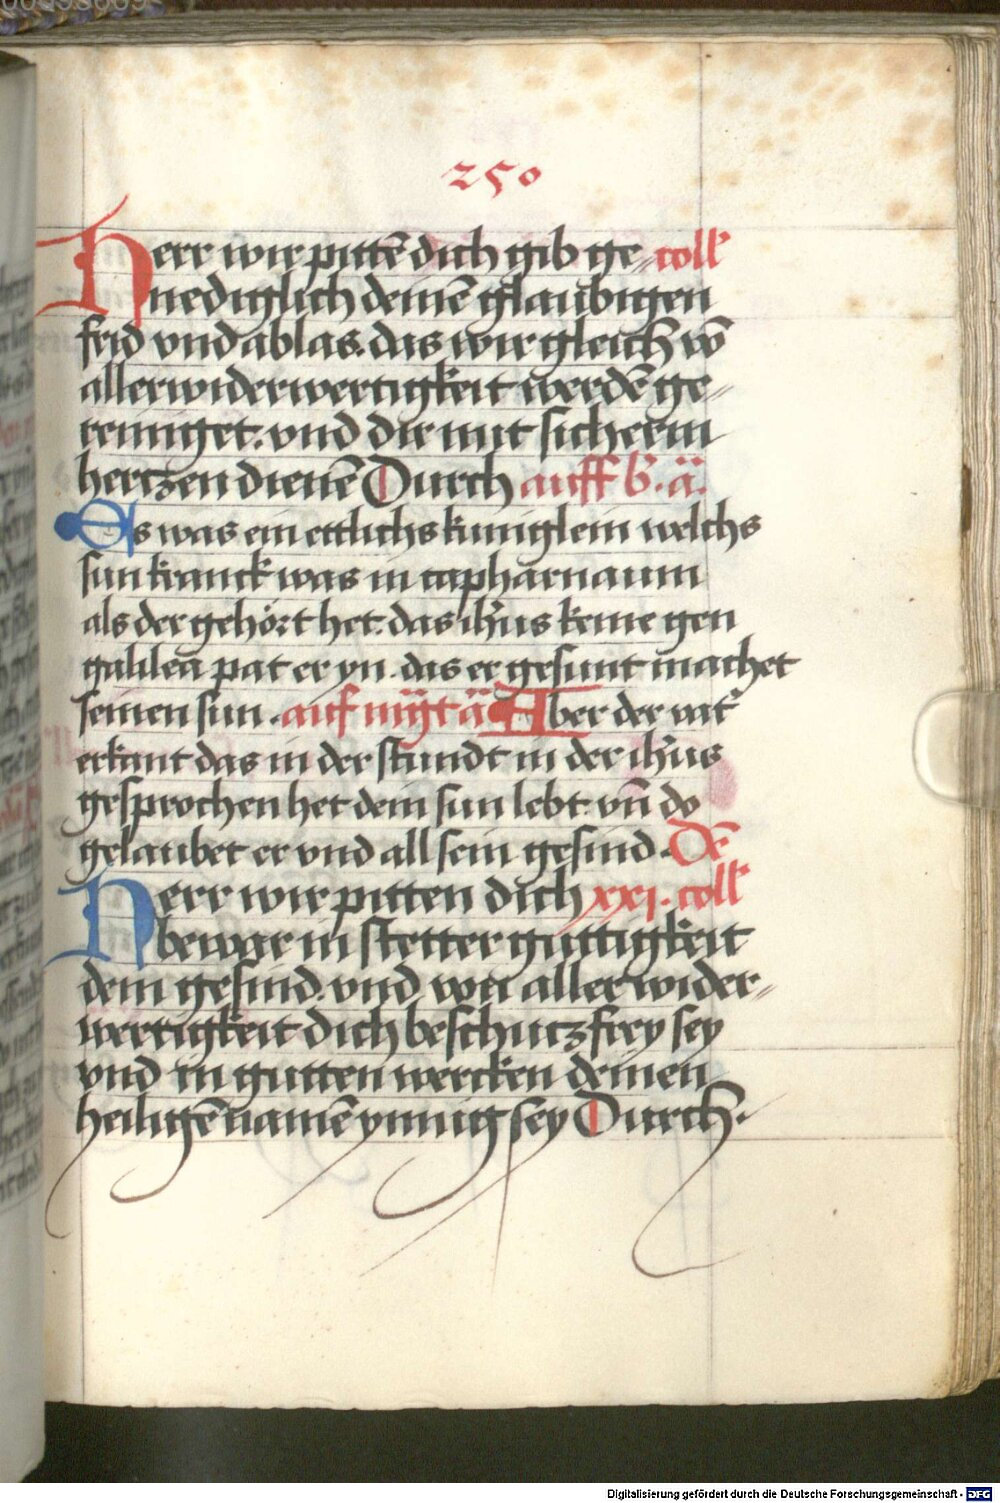 250
Herr wir pittē dich gib ge⸗ coll̄
nediglich deinē glaubigen
frid vnd ablas. das wir gleich vō
aller widerwertigkeit werdē ge⸗
reiniget. vnd dir mit sicherm
hertzen dienē Durch auff b̄. ä.
Es was ein ettlichs kuniglein welchs
sun kranck was in capharnaum
als der gehört het. das ihūs keme gen
galilea pat er yn. das er gesunt machet
seinen sun. auf mgt̄ ä Aber der vat̄
erkant das in der stundt in der ihūs
gesprochen het dein sun lebt. vn̄ do
gelaubet er vnd all sein gesind. Dē
Herr wir pitten dich xxi. coll̄
bewar in stetter guttigkeit
dein gesind. vnd von aller wider⸗
wertigkeit dich beschutz frey sey
vnd in gutten wercken deinen
heiligē namē ynnig sey Durch.
Digitalisierung gefördert durch die Deutsche Forschungsgemeinschaft - DFG